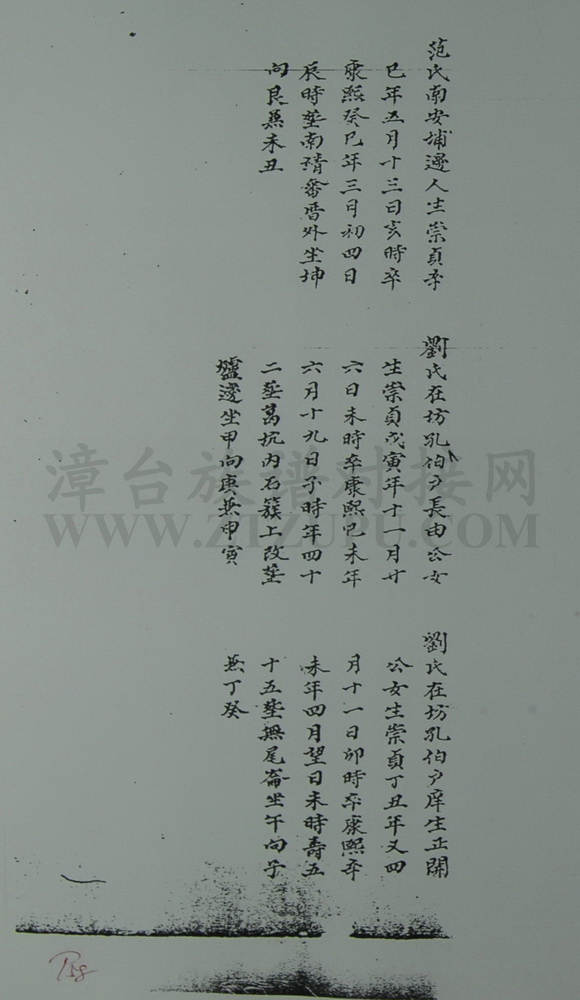 范氏南安埔邊人生崇貞辛
巳年五月十三日亥時卒
康熙癸巳年三月初四日
辰時塟南靖番厝外坐坤
向艮兼未丑
劉氏在坊孔伯户長由公女
生崇貞戊寅年十一月廿
六日未時卒康熙己未年
六月十九日子時年四十
二塟葛坑內石簇上改塟
爐邊坐甲向庚兼申寅
劉氏在坊孔伯户庠生正開
公女生崇貞丁丑年又四
月十一日卯時卒康熙辛
未年四月望日未時壽五
十五塟撫尾崙坐午向子
兼丁癸
漳台族譜对接网
WWW.ZTZUPU.COM
P58